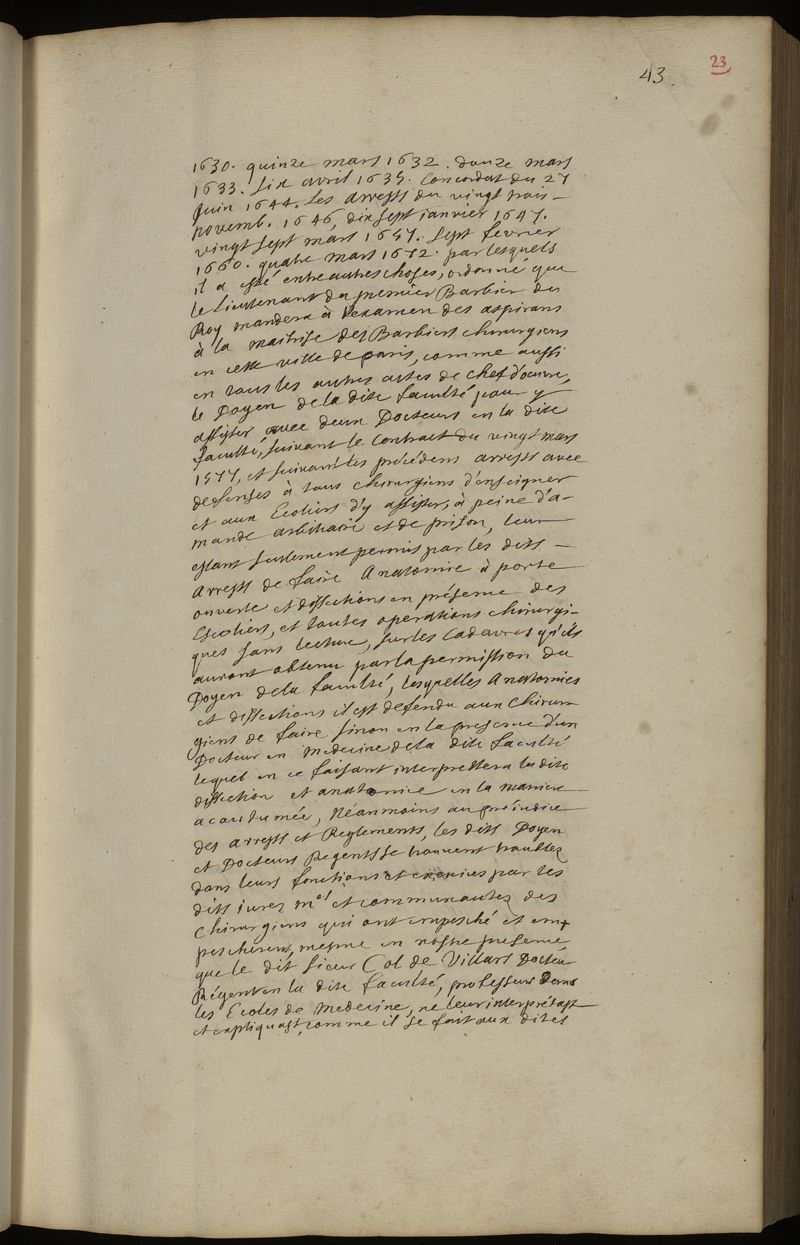 43.
23
1630. quinze mars 1632. douze mars
1633. six avril 1635. Concordat du 27
Juin 1644. les arrests du vingt trois
novemb. 1646, dix sept janvier 1647.
vingt sept mars 1657. sept fevrier
1660. quatre mars 1672. par lesquels
il a esté entre autres choses, ordonné que
le lieutenant du premier Barbier du
Roy mandera à l'examen des aspirans
à la maitrise des Barbiers chirurgiens
en cette ville de paris, comme aussi
en tous les autres actes de chef d'oeuvre,
le Doyen de la dite faculté, pour y
assister avec deux Docteurs en la dite
faculté, suivant le contract du vingt mars
1577, et suivant les précédens arrests avec
defenses à tous chirurgiens d'enseigner
et aux Ecoliers d'y assister, à peine d'a-
mande arbitraire et de prison, leur
estant seulement permis par les dits
Arrests de faire Anatomie à porte
ouverte et dissections en présence des
Escoliers, et toutes operations chirurgi-
ques sans lecture, sur les Cadavres qu'ils
auront obtenu par la permission du
Doyen de la faculté, lesquelles Anatomies
et dissections il est defendu aux chirur
giens de faire sinon en la presence d'un
Docteur en medecine de la dite faculté
lequel en ce faisant interpretera la dite
dissection et anatomie en la maniere
acoutumée, Néanmoins au préjudice
des arrests et Reglements, les dits Doyen
et Docteurs Regents se trouvent troublez
dans leurs fonctions et exercices par les
dits jurez et communautez des
chirurgiens qui ont empesché et em
pescherent, mesme en nostre presence
que le dit sieur Col de Villars Docteur
Régent en la dite faculté, professeur dans
les Ecoles de Medecine, ne leur interprétast
et expliquast, comme il se fait aux dites